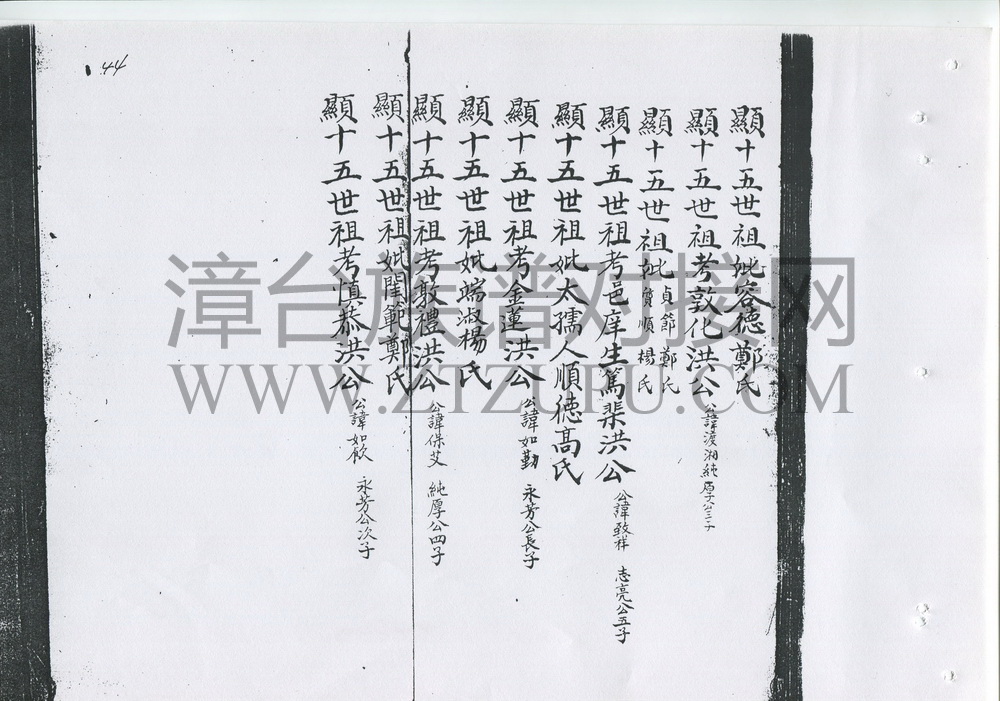 44
顯十五世祖妣容德鄭氏
顯十五世祖考敦化洪公 公諱渡湘 純厚公三子
顯十五世祖妣 貞節鄭氏 順楊氏
顯十五世祖考邑庠生篤渠洪公 公諱致祥 志亮公五子
顯十五世祖妣太孺人順德高氏
顯十五世祖考金蓮洪公 公諱如勤 永芳公長子
顯十五世祖妣端淑楊氏
顯十五世祖考敦禮洪公 公諱保艾 純厚公四子
顯十五世祖妣閨範鄭氏
顯十五世祖考慎恭洪公 公諱如欽 永芳公次子
漳台族谱对接网
WWW.ZTZUPU.COM